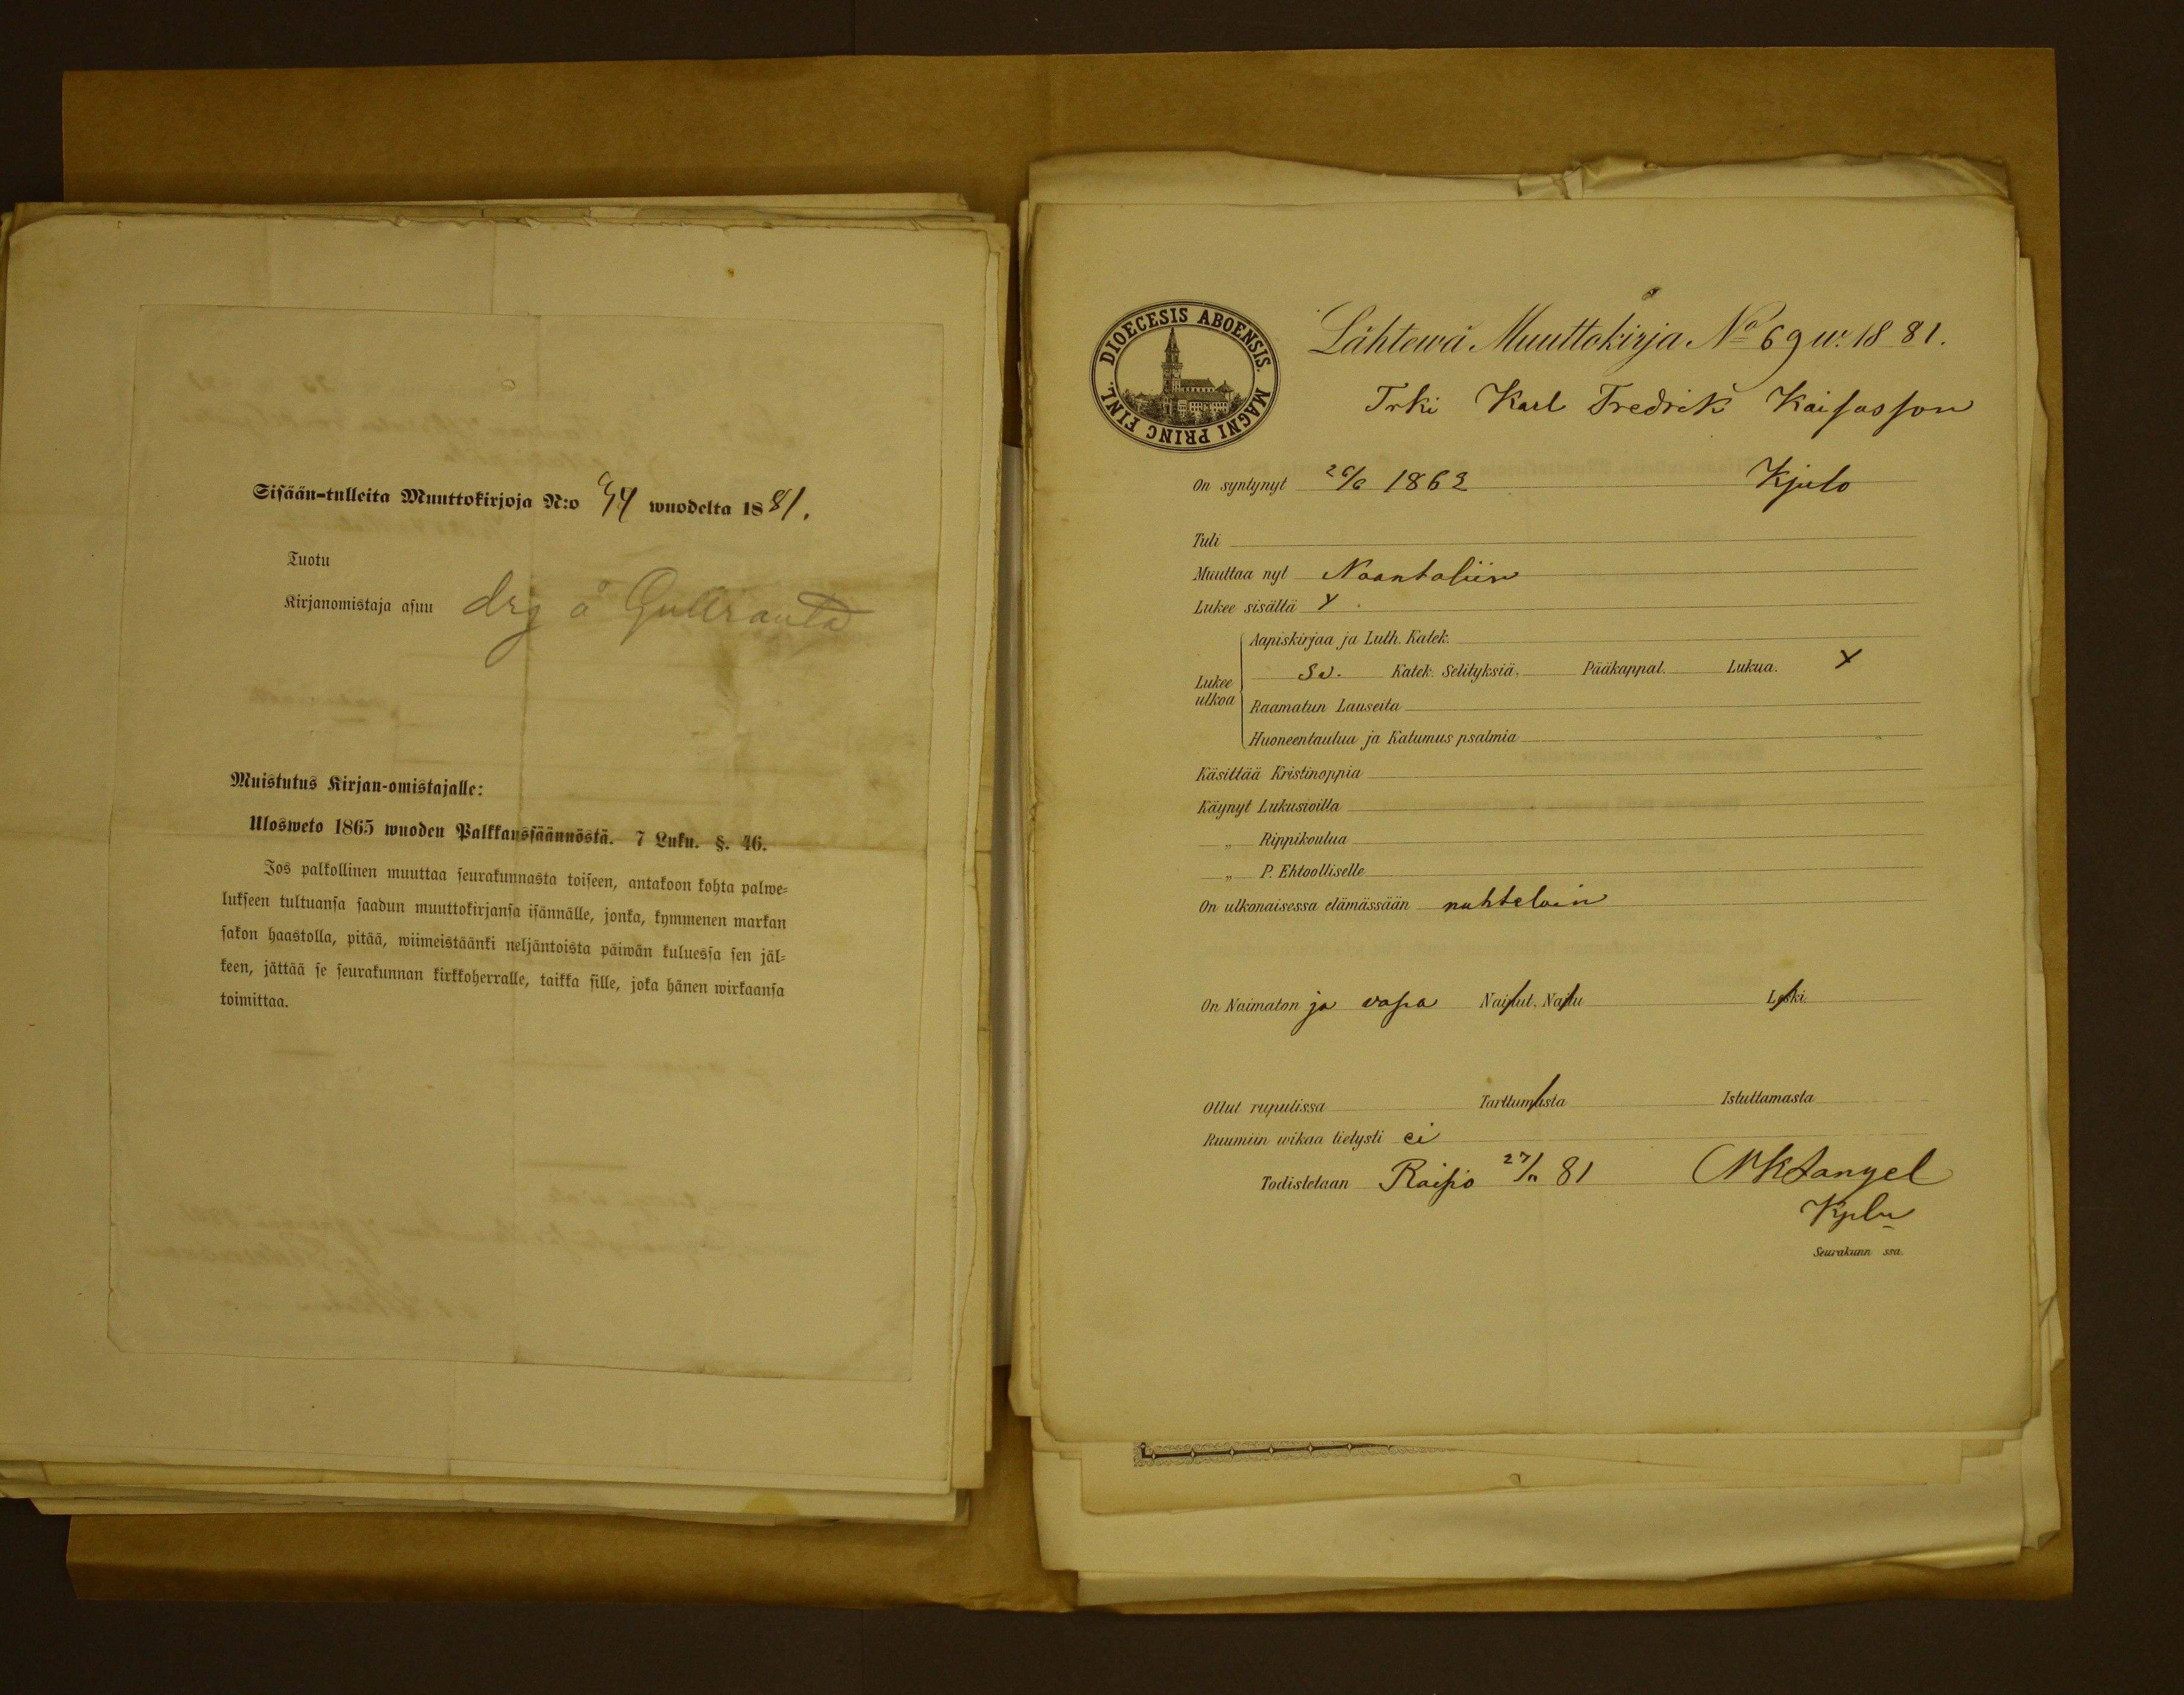 Sisään-tulleita Muuttokirjoja N:o 44 wuodelta 1881.
Tuotu
Kirjanomistaja asuu drg å Gullranta
Muistutus Kirjan-omistajalle:
Ulosweto 1865 wuoden Palkkaussäännöstä. 7 Luku. §. 46.
Jos palkollinen muuttaa seurakunnasta toiseen, antakoon kohta palwe=
lukseen tultuansa saadun muuttokirjansa isännälle, jonka, kymmenen markan
sakon haastolla, pitää, wiimeistäänki neljäntoista päiwän kuluessa sen jäl=
keen, jättää se seurakunnan kirkkoherralle, taikka sille, joka hänen wirkaansa
toimittaa.
DIOECESIS ABOENSIS. MAGNI PRINC FINL.
Lähtewä Muuttokirja No 69 w. 1881.
Trki Karl Fredrik Kaisasson
On syntynyt 26/6 1862 Kjulo
Tuli
Muuttaa nyt Naantaliin
Lukee sisältä Y
Lukee ulkoa
Aapiskirjaa ja Luth. Katek.
Sv. Katek. Selityksiä, Pääkappal. Lukua. Y
Raamatun Lauseita
Huoneentaulua ja Katumus psalmia
Käsittää Kristinoppia
Käynyt Lukusioilla
„ Rippikoulua
„ P. Ehtoolliselle
On ulkonaisessa elämässään nuhteloin
On Naimaton ja vapa Nainut. Naitu Leski.
Ollut rupulissa Tarttumasta Istuttamasta
Ruumiin wikaa tietysti ei
Todistetaan Raisio 27/11 81
Kplu
Seurakunn ssa.